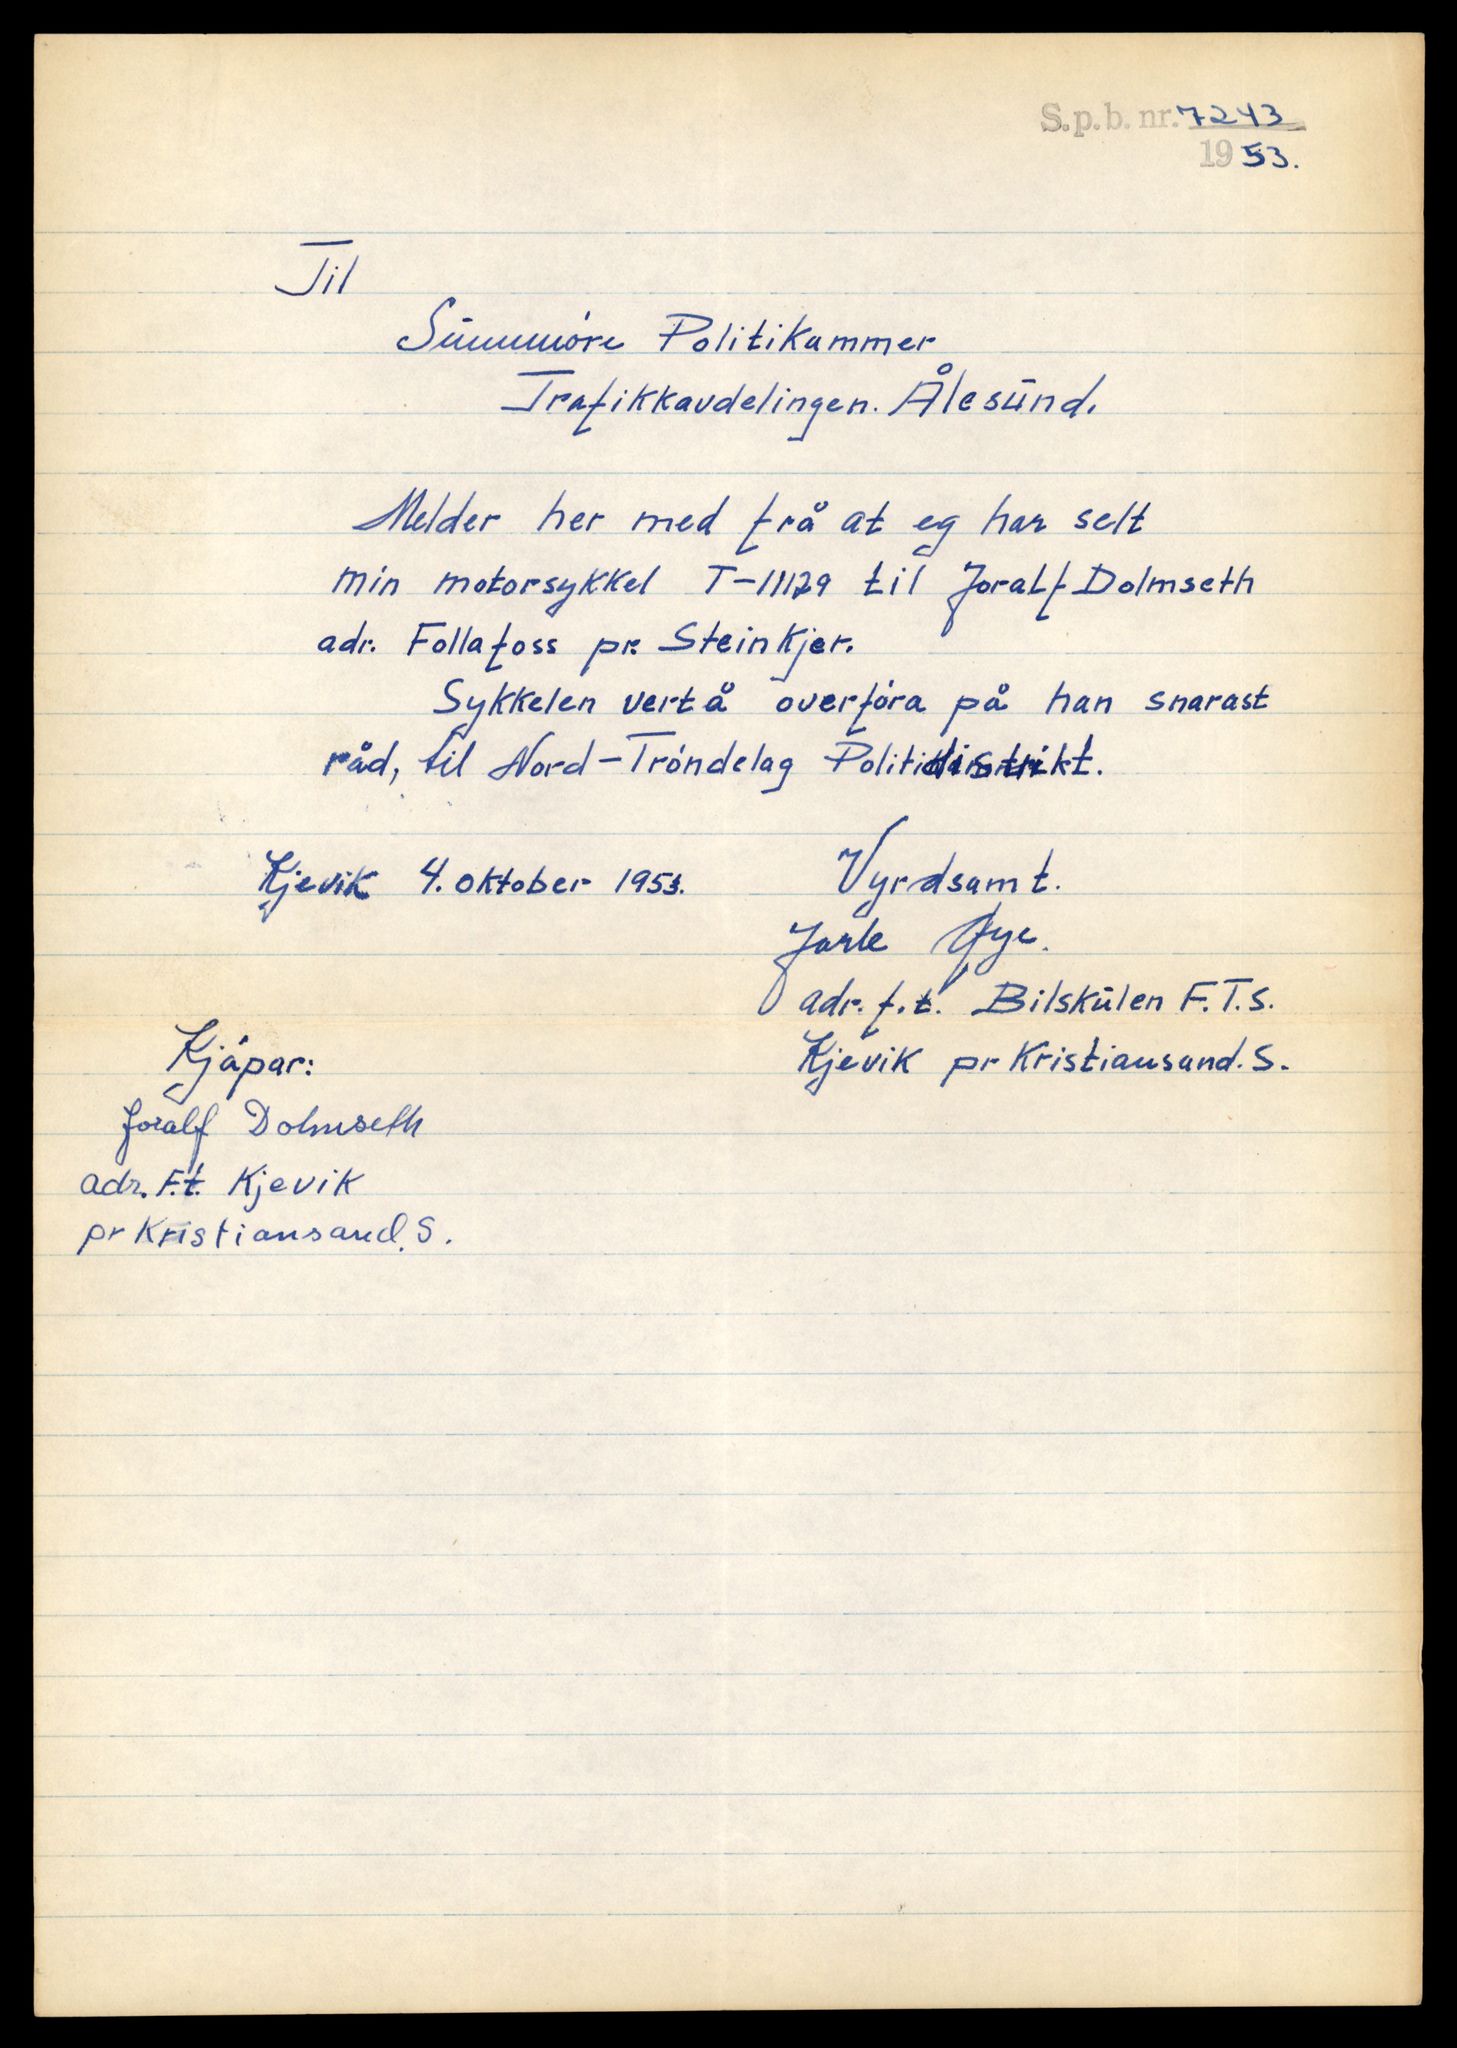 S.p.b. nr. 7243
1953.
Til
Sunnmöre Politikammer
Trafikkavdelingen. Ålesund.
Melder her med frå at eg har selt
min motorsykkel T-11129 til Joralf Dolmseth
adr. Follafoss pr. Steinkjer.
Sykkelen vert å overföra på han snarast
råd, til Nord-Tröndelag Politidistrikt.
Kjevik 4. oktober 1953.
Vyrdsamt.
Jarle Øye.
adr. f.t. Bilskulen F.T.S.
Kjevik pr Kristiansand. S.
Kjöpar:
Joralf Dolmseth
adr. F.t. Kjevik
pr Kristiansand. S.